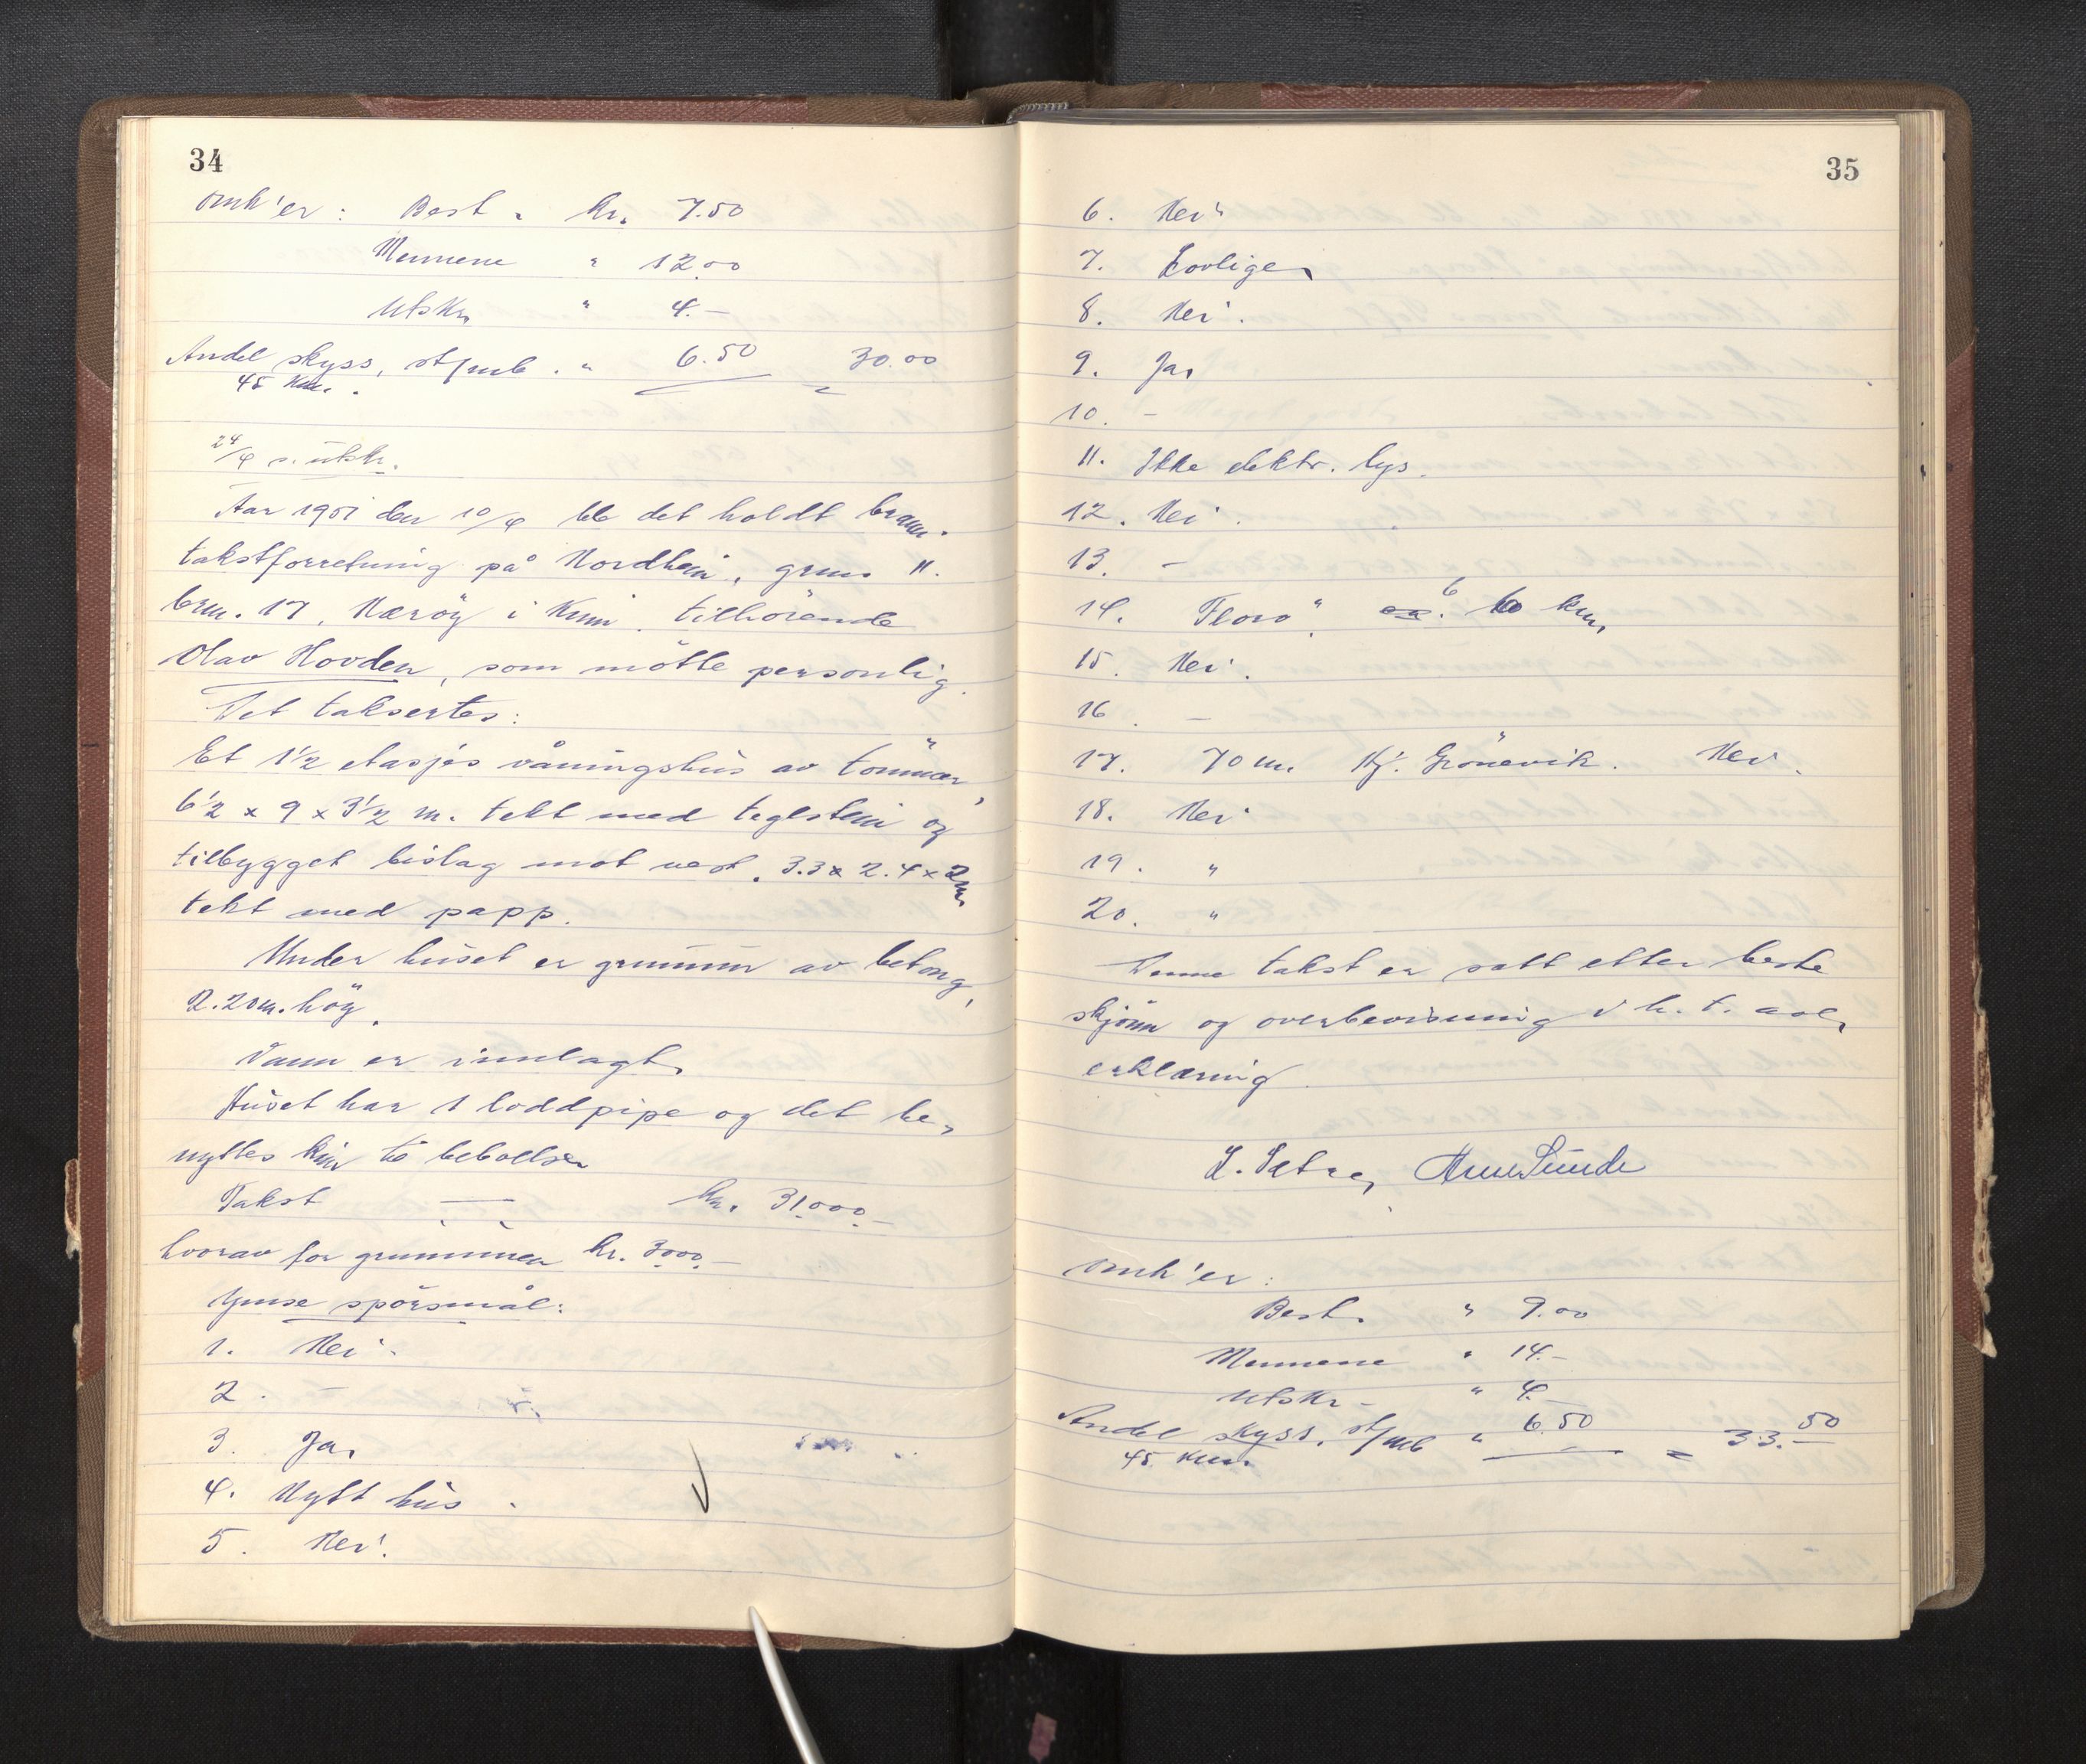 34
Omk'er: Best. kr. 7.50
Mennene " 12.00
Utskr. " 4.-
Andel skyss, ot/mb. " 6.50 = 30.00
45 km.
24/4 s. utskr.
Aar 1951 den 10/4 ble det holdt brann-
takstforretning på Nordheim, grnr. 11.
brnr. 17, Nærøy i Kinn, tilhørende
Olav Hovden, som møtte personlig.
Det taksertes:
Et 1½ etasjes våningshus av tømmer,
6½ x 9 x 3½ m. tekt med teglstein og
tilbygget bislag mot vest. 3.3 x 2.4 x 2m
tekt med papp.
Under huset er grunnmur av betong,
2.20m. høg.
Vann er innlagt.
Huset har 1 loddpipe og det be-
nyttes kun til beboelse.
Takst — kr. 31.000.-
hvorav for grunnmuren kr. 3000.-
Ymse spørsmål:
1. Nei.
2. -
3. Ja.
4. Nytt hus.
5. Nei.
35
6. Nei
7. Lovlige.
8. Nei.
9. Ja.
10. -
11. Ikke elektr. lys.
12. Nei.
13. -
14. "Florø". 6 km.
15. Nei.
16. -
17. 70 m. Kj. Grønevik. Nei.
18. Nei
19. "
20. "
Denne takst er satt etter beste
skjønn og overbevisning i h. t. avl.
erklæring.
J. Sætre, Arne Sunde
Omk'er:
Best. " 9.00
Mennene " 14.-
Utskr. " 4.-
Andel skyss, ot/mb " 6.50 = 33.50
45 km.